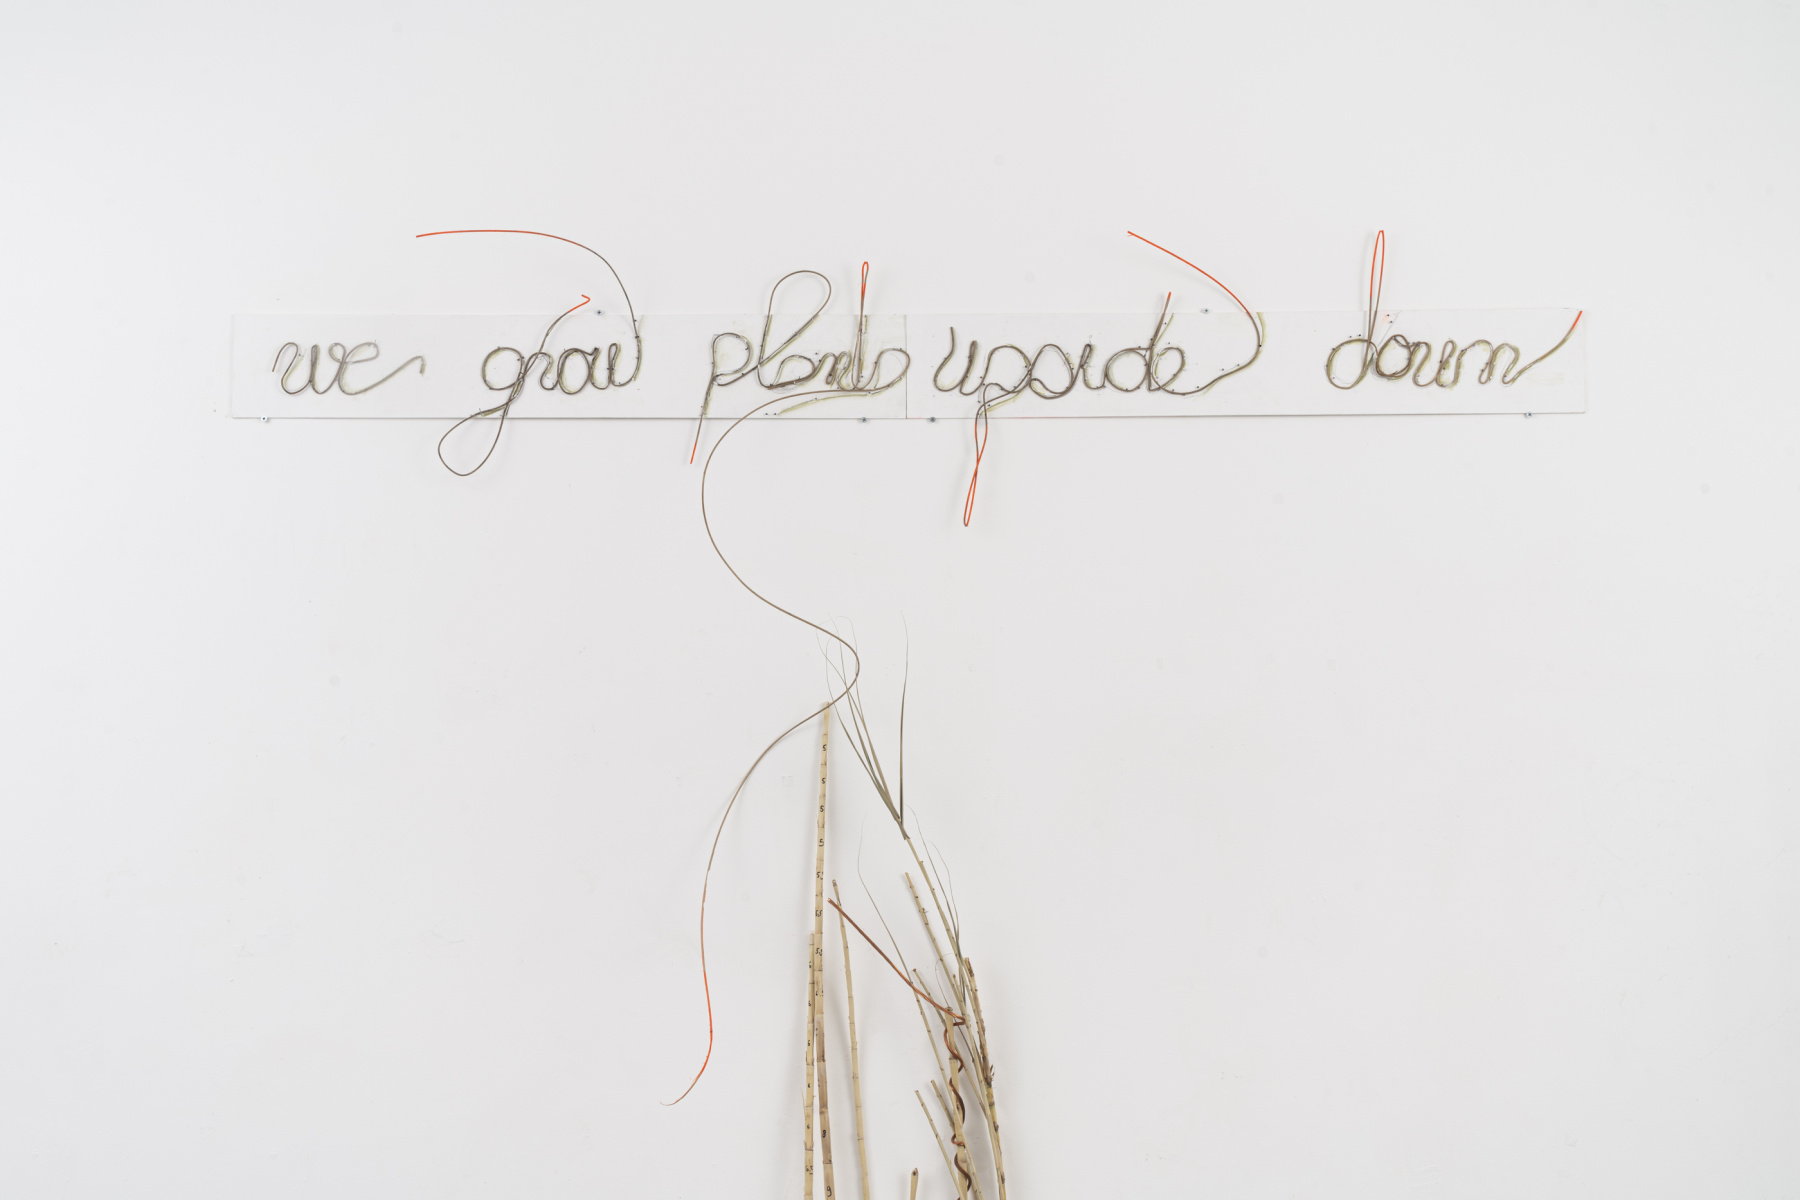 we grow plants upside down